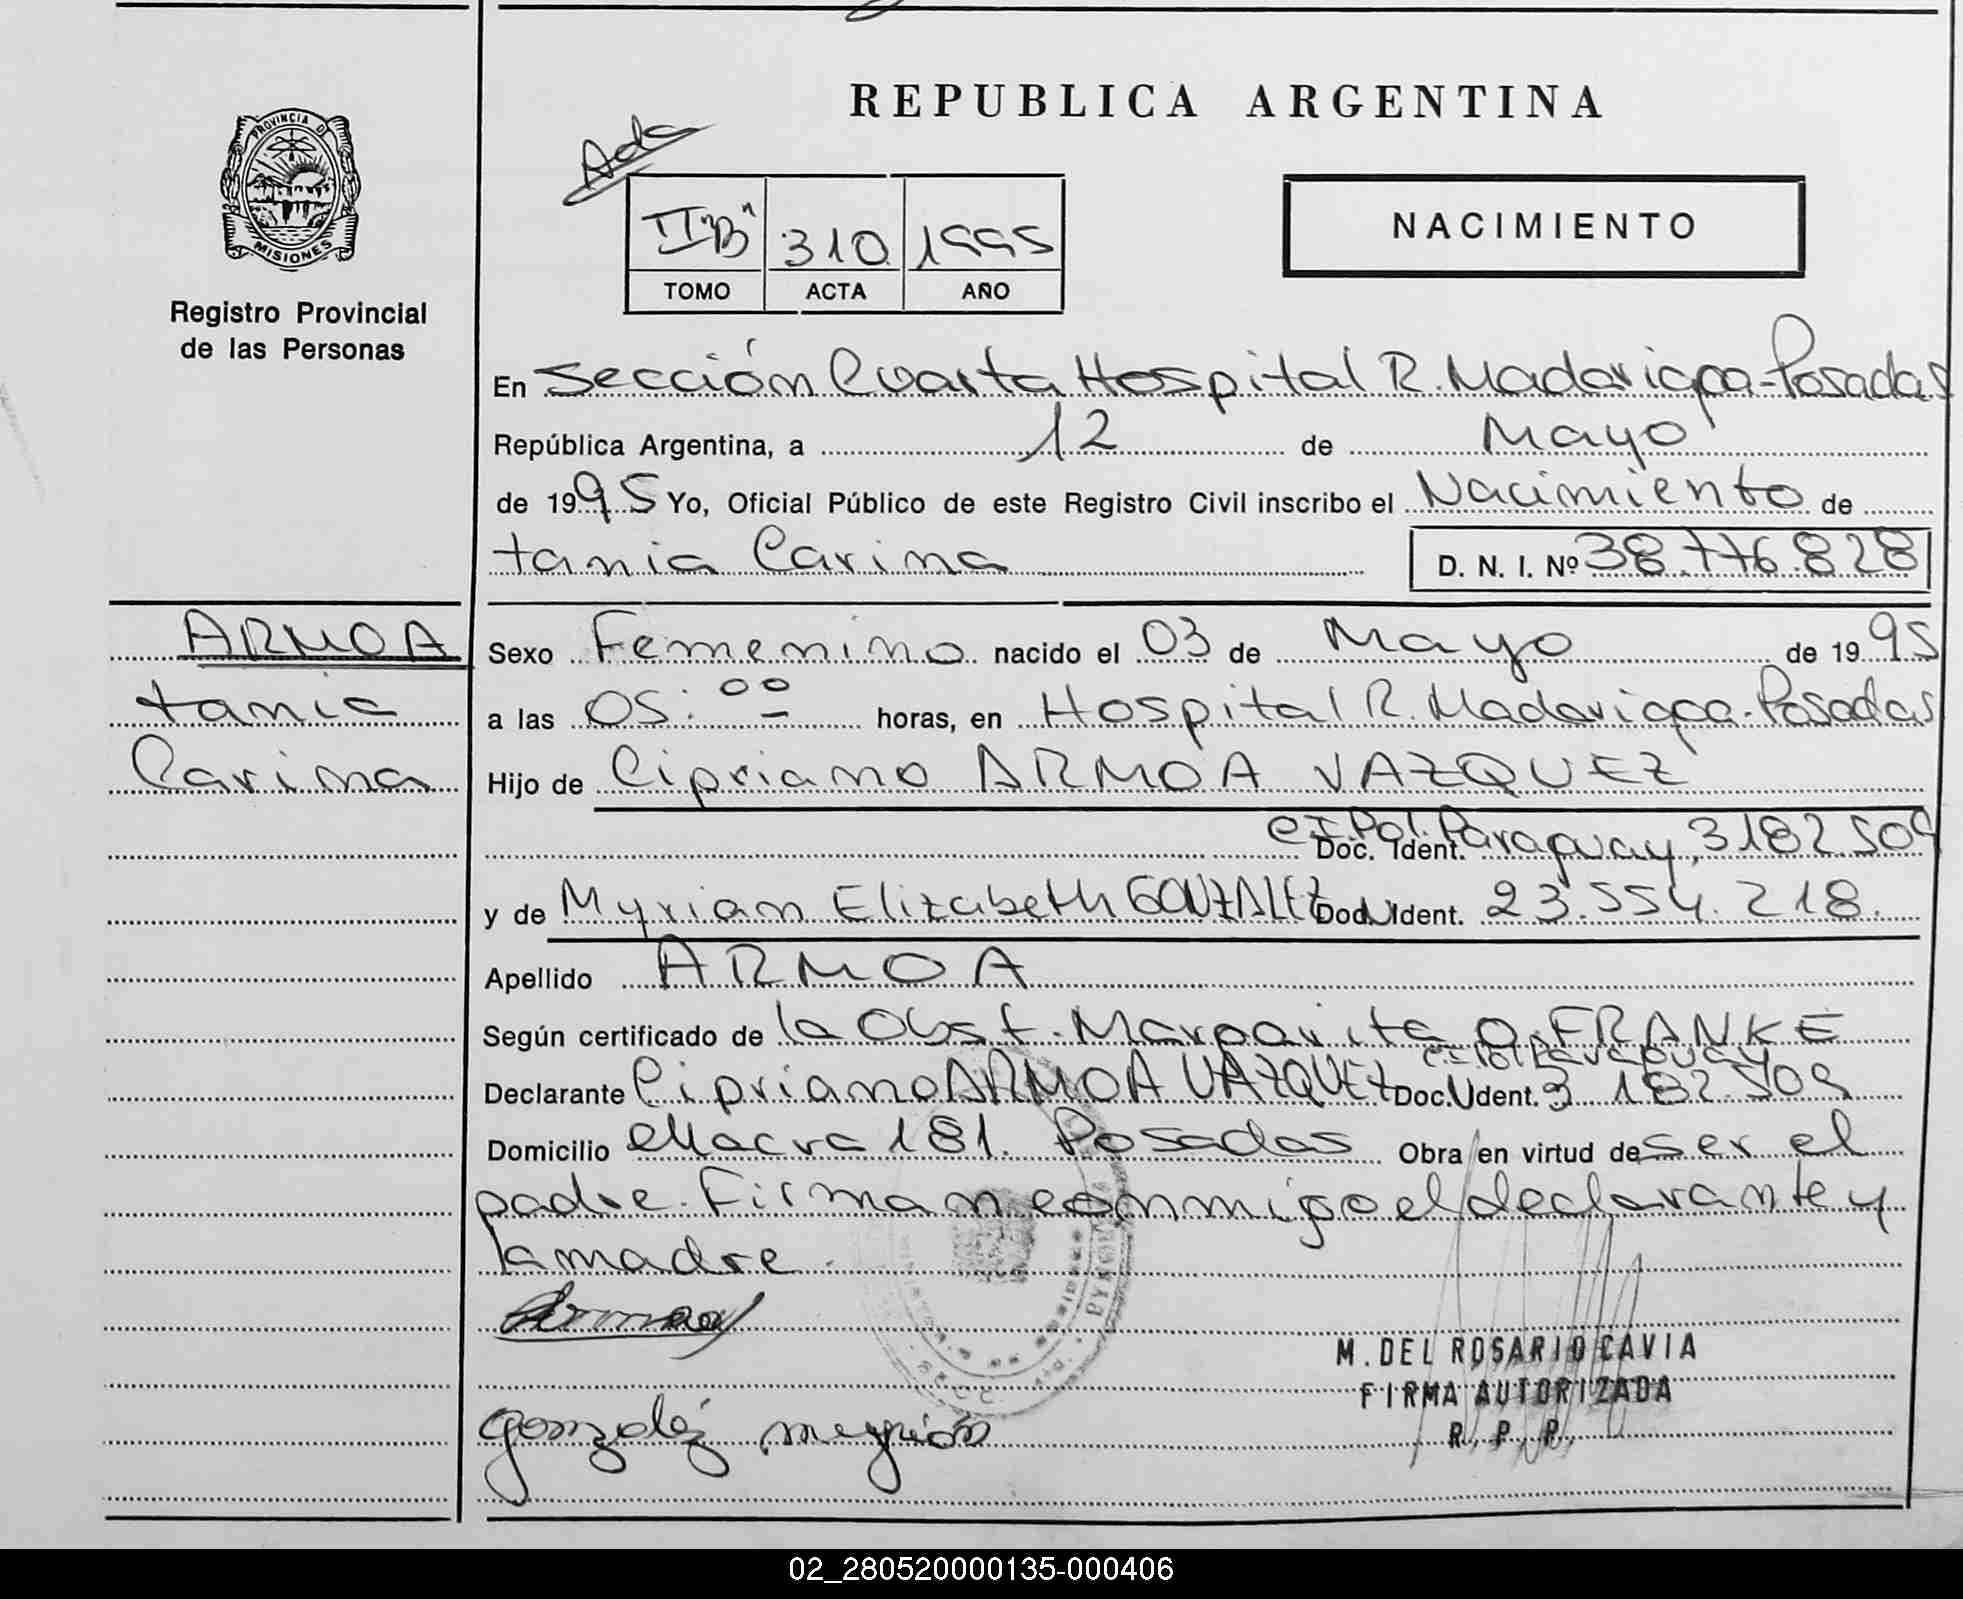 REPUBLICA ARGENTINA
PROVINCIA DE
MISIONES
Registro Provincial
de las Personas
Ado
II "B" 310 1995
TOMO ACTA AÑO
NACIMIENTO
En Sección Cuarta Hospital R. Madariaga-Posadas
República Argentina, a 12 de Mayo
de 1995 Yo, Oficial Público de este Registro Civil inscribo el Nacimiento de
tania Carina D. N. I. Nº 38.776.828
ARMOA
tania
Carina
Sexo Femenino nacido el 03 de Mayo de 1995
a las 05:00 horas, en Hospital R. Madariaga-Posadas
Hijo de Cipriano ARMOA VAZQUEZ
Doc. Ident. C.I.Pol. Paraguay, 3182509
y de Myriam Elizabeth GONZALEZ Doc. Ident. 23.554.218.
Apellido ARMOA
Según certificado de la Obst. Margarita O. FRANKE
C.I. Pol Paraguay
Declarante Cipriano ARMOA VAZQUEZ Doc. Ident. 3182.509
Domicilio Chacra 181. Posadas Obra en virtud de ser el
padre. Firman conmigo el declarante y
la madre.
Armoa
M. DEL ROSARIO CAVIA
FIRMA AUTORIZADA
R. P. P.
gonzález
02_280520000135-000406